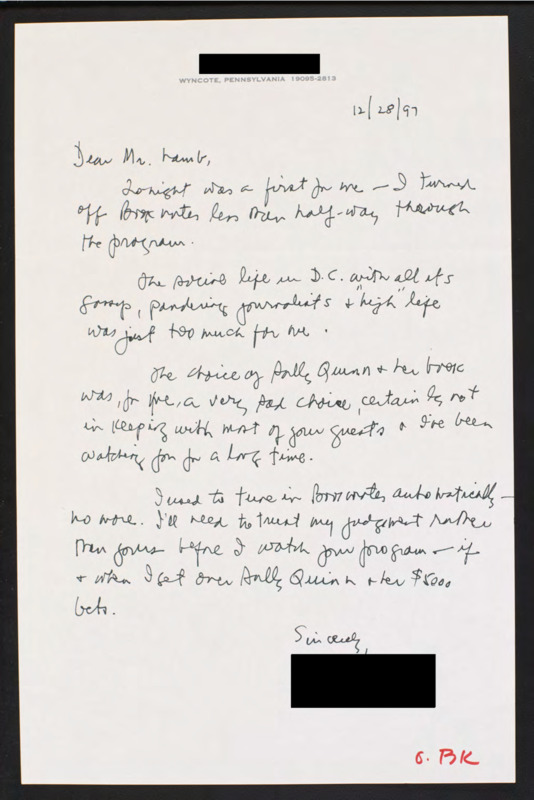 WYNCOTE, PENNSYLVANIA 19095-2813
12/28/97
Dear Mr. Lamb,
Tonight was a first for me — I turned
off Booknotes less than half-way through
the program.
The social life in D.C. with all its
gossip, pandering journalists & "high" life
was just too much for me.
The choice of Sally Quinn & her book
was, for me, a very sad choice, certainly not
in keeping with most of your guests & I've been
watching you for a long time.
I used to tune in Booknotes automatically —
no more. I'll need to trust my judgement rather
than yours before I watch your program — if
& when I get over Sally Quinn & her $5000
bets.
Sincerely,
BK